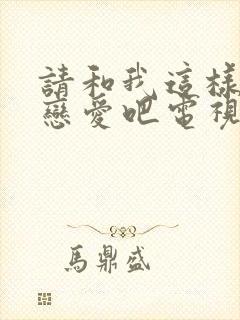 請和我這樣
戀愛吧電視
馬鼎盛